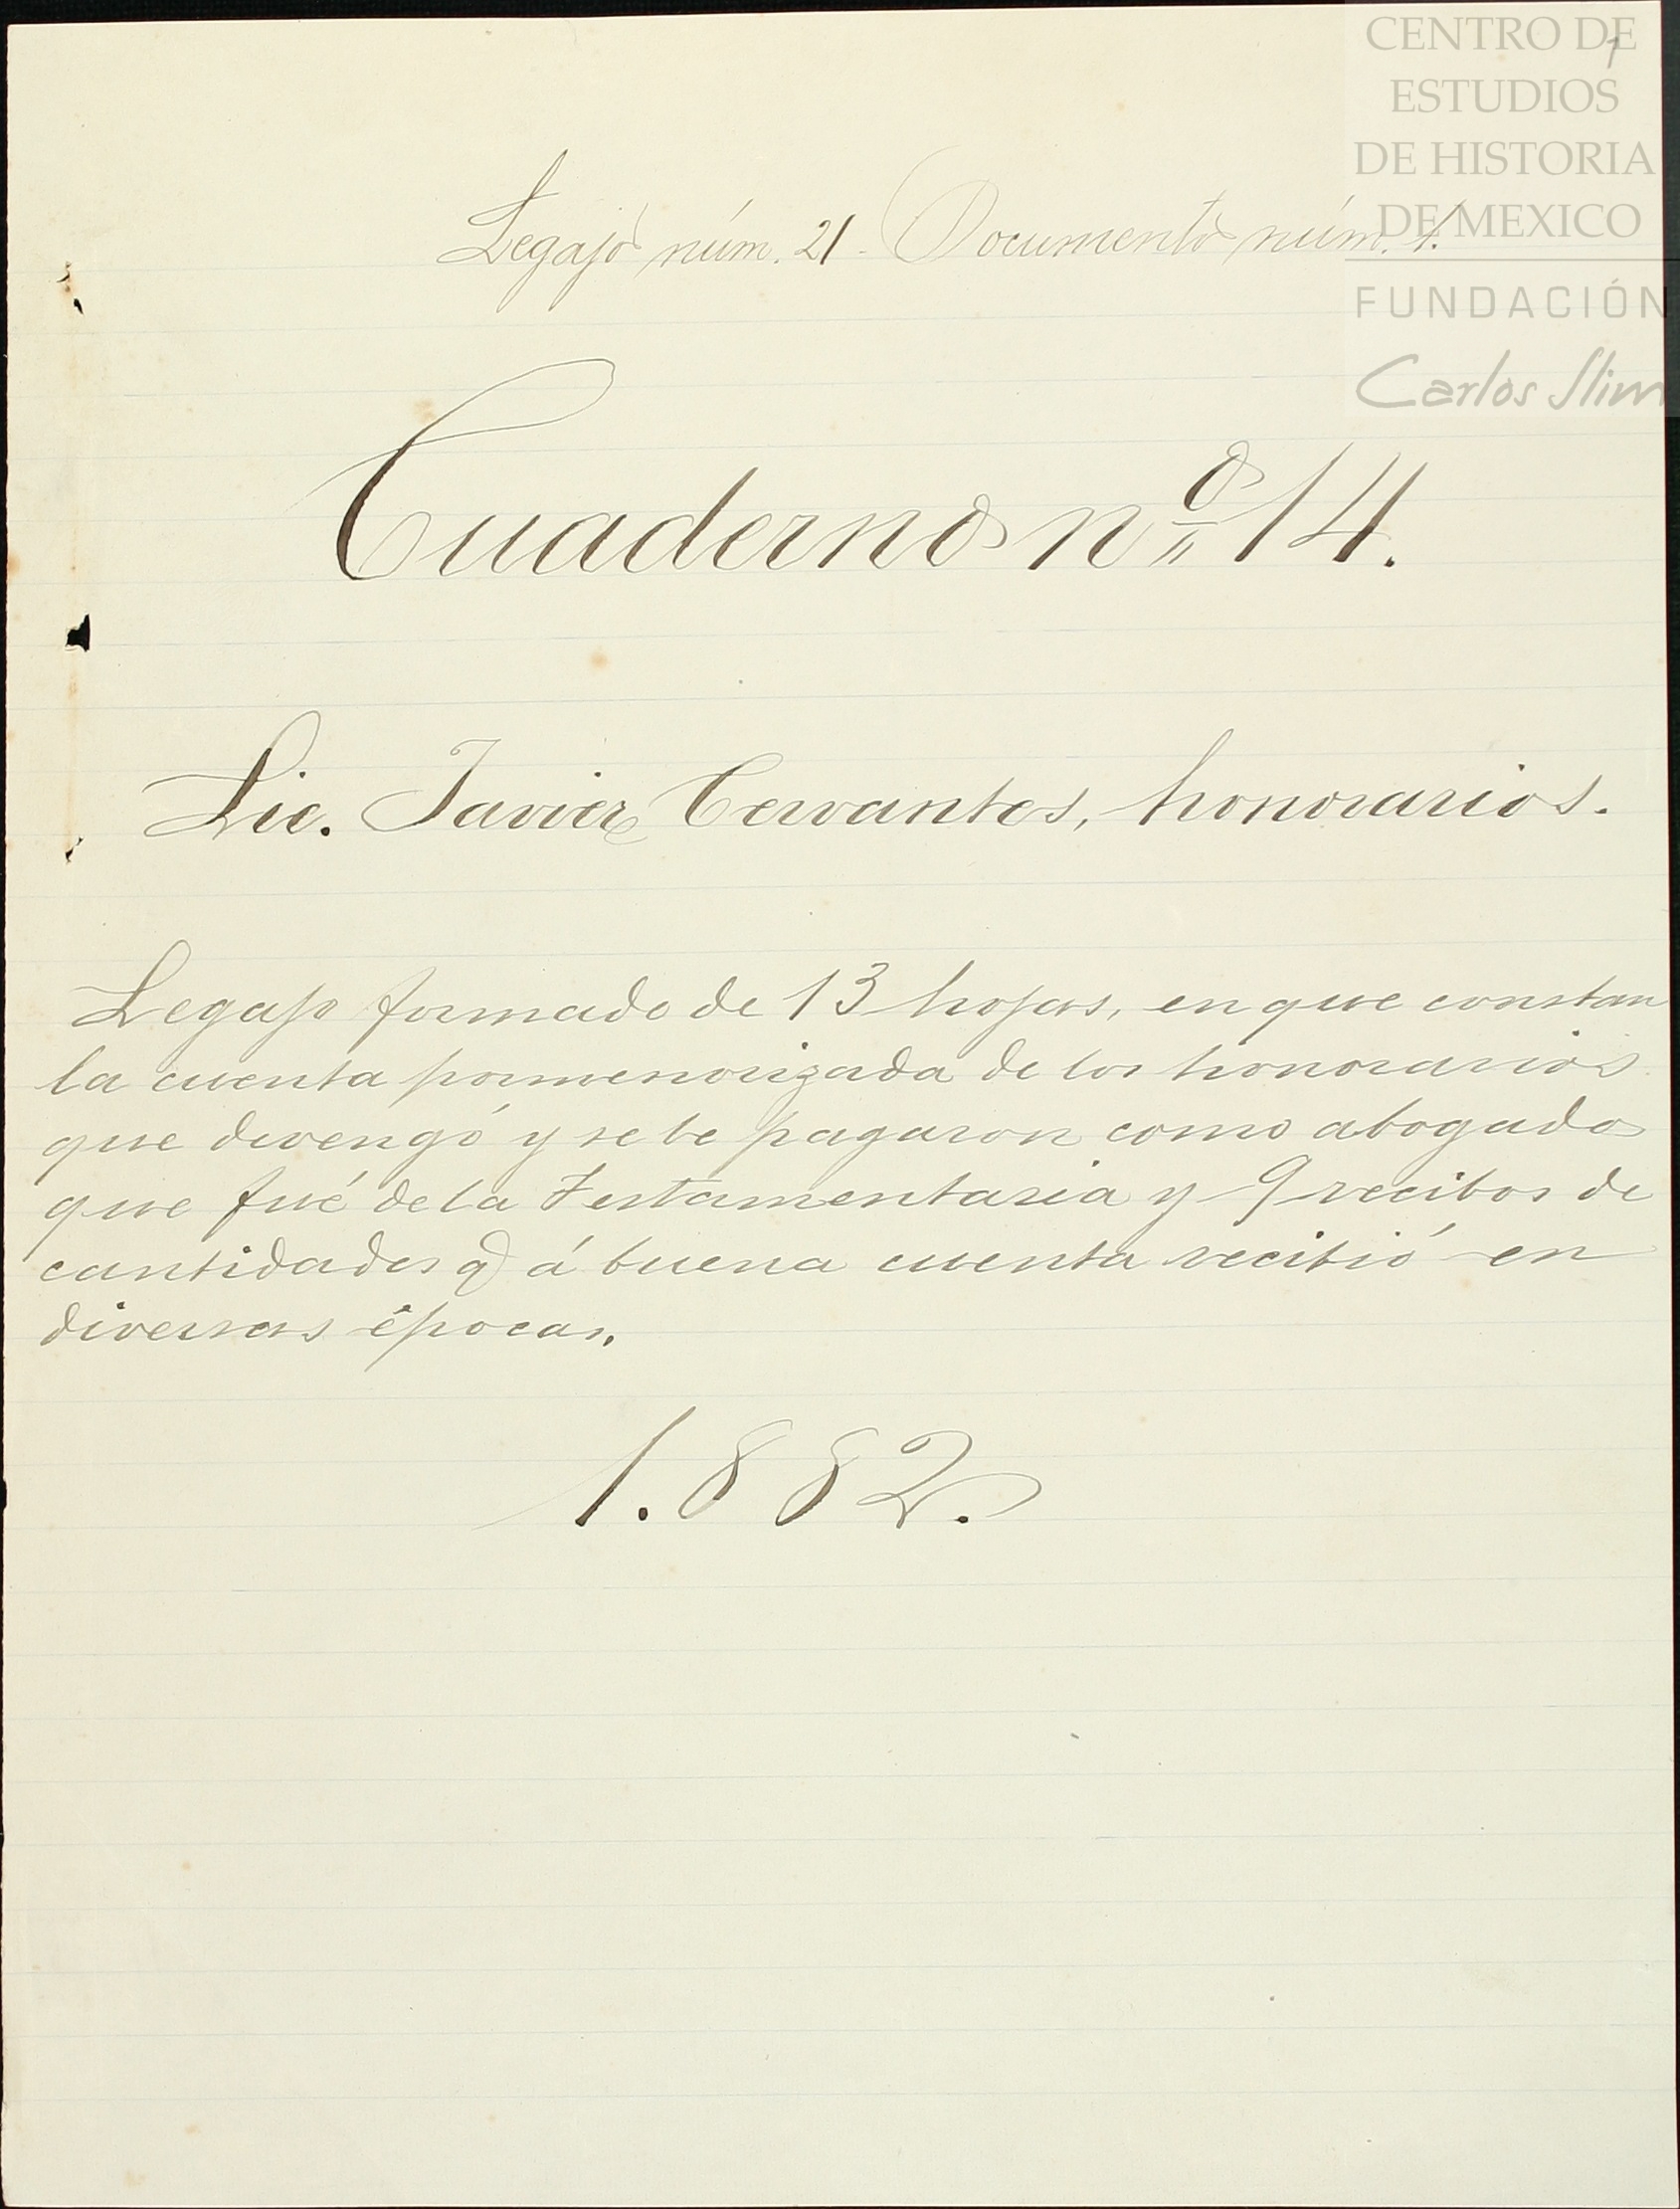 CENTRO DE
ESTUDIOS
DE HISTORIA
DE MEXICO
FUNDACIÓN
Carlos Slim
1
Legajo núm. 21 - Documento núm. 1.
Cuaderno nº 14.
Lic. Javier Cervantes, honorarios.
Legajo formado de 13 hojas, en que constan
la cuenta pormenorizada de los honorarios
que devengó y se le pagaron como abogado
que fué de la Testamentaria y 9 recibos de
cantidades q á buena cuenta recibió en
diversas épocas.
1.882.